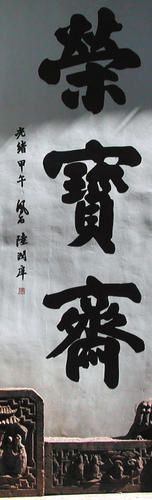 榮寶齋
光緒甲午 鳳石 陸潤庠